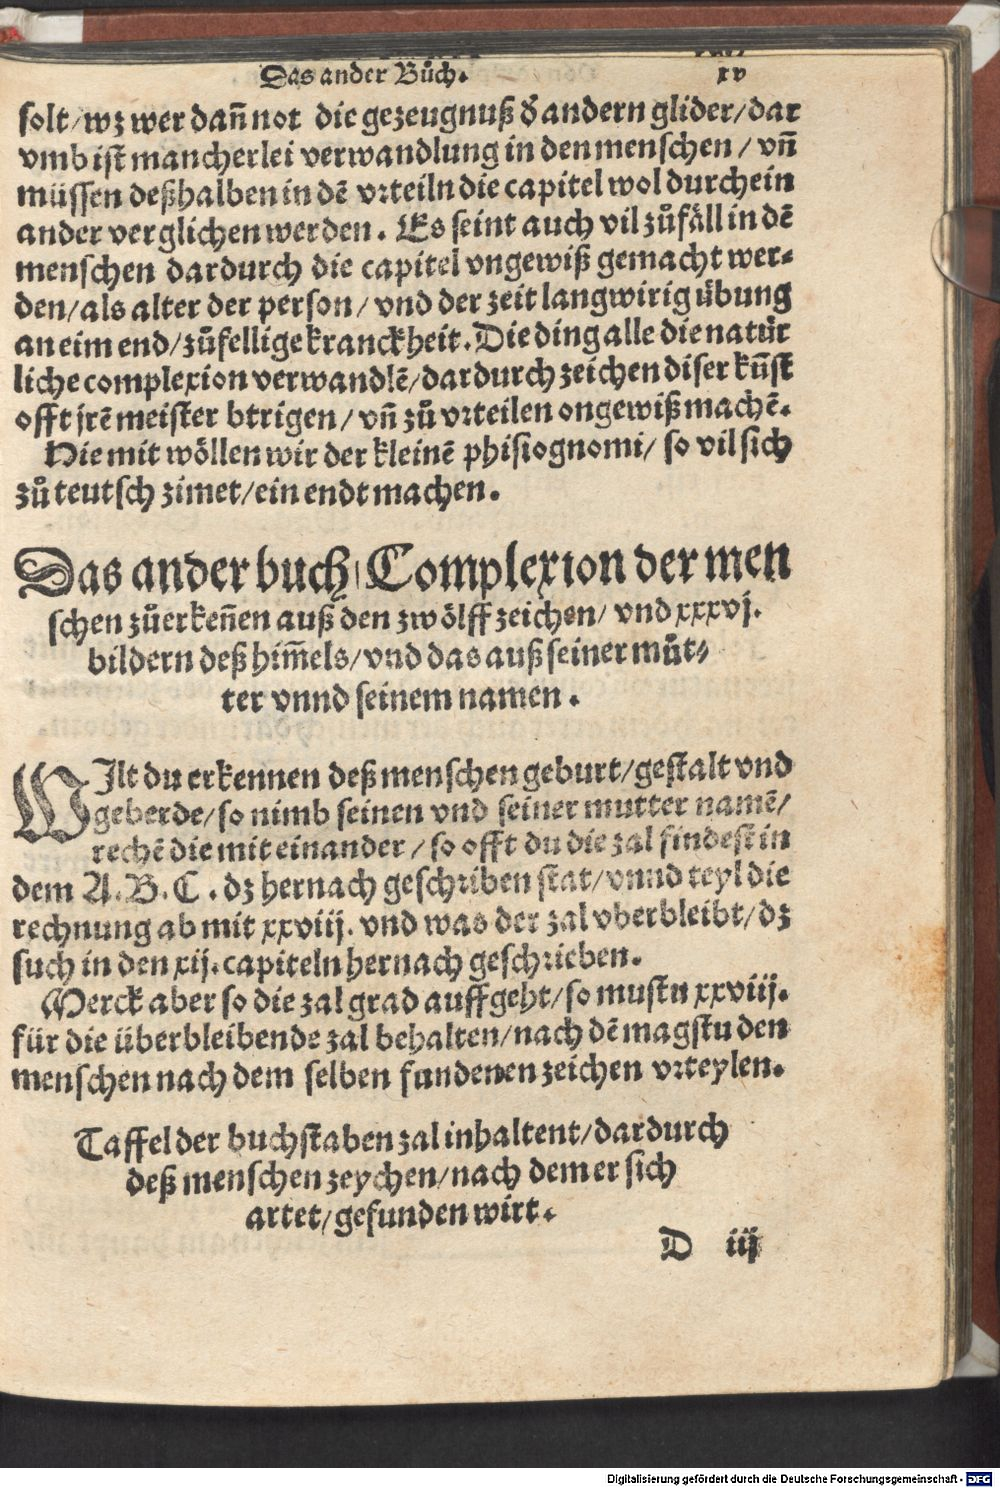 Das ander Bůch. xv
solt/wz wer dañ not die gezeugnuß d̕ andern glider/dar
vmb ist mancherlei verwandlung in den menschen/vñ
müssen deßhalben in dẽ vrteiln die capitel wol durchein
ander verglichen werden. Es seint auch vil zůfäll in dẽ
menschen dardurch die capitel vngewiß gemacht wer⸗
den/als alter der person/vnd der zeit langwirig übung
an eim end/zůfellige kranckheit. Die ding alle die natür
liche complexion verwandlẽ/dardurch zeichen diser kũst
offt jrẽ meister btrigen/vñ zů vrteilen ongewiß machẽ.
Hie mit wöllen wir der kleinẽ phisiognomi/so vil sich
zů teutsch zimet/ein endt machen.
Das ander buch/Complexion der men
schen zůerkeñen auß den zwölff zeichen/vnd xxxvj.
bildern deß him̃els/vnd das auß seiner můt⸗
ter vnnd seinem namen.
WIlt du erkennen deß menschen geburt/gestalt vnd
geberde/so nimb seinen vnd seiner mutter namẽ/
rechẽ die mit einander/so offt du die zal findest in
dem A.B.C. dz hernach geschriben stat/vnnd teyl die
rechnung ab mit xxviij. vnd was der zal vberbleibt/dz
such in den xij. capiteln hernach geschrieben.
Merck aber so die zal grad auffgeht/so mustu xxviij.
für die überbleibende zal behalten/nach dẽ magstu den
menschen nach dem selben fundenen zeichen vrteylen.
Taffel der buchstaben zal inhaltent/dardurch
deß menschen zeychen/nach dem er sich
artet/gefunden wirt.
D iij
Digitalisierung gefördert durch die Deutsche Forschungsgemeinschaft - DFG